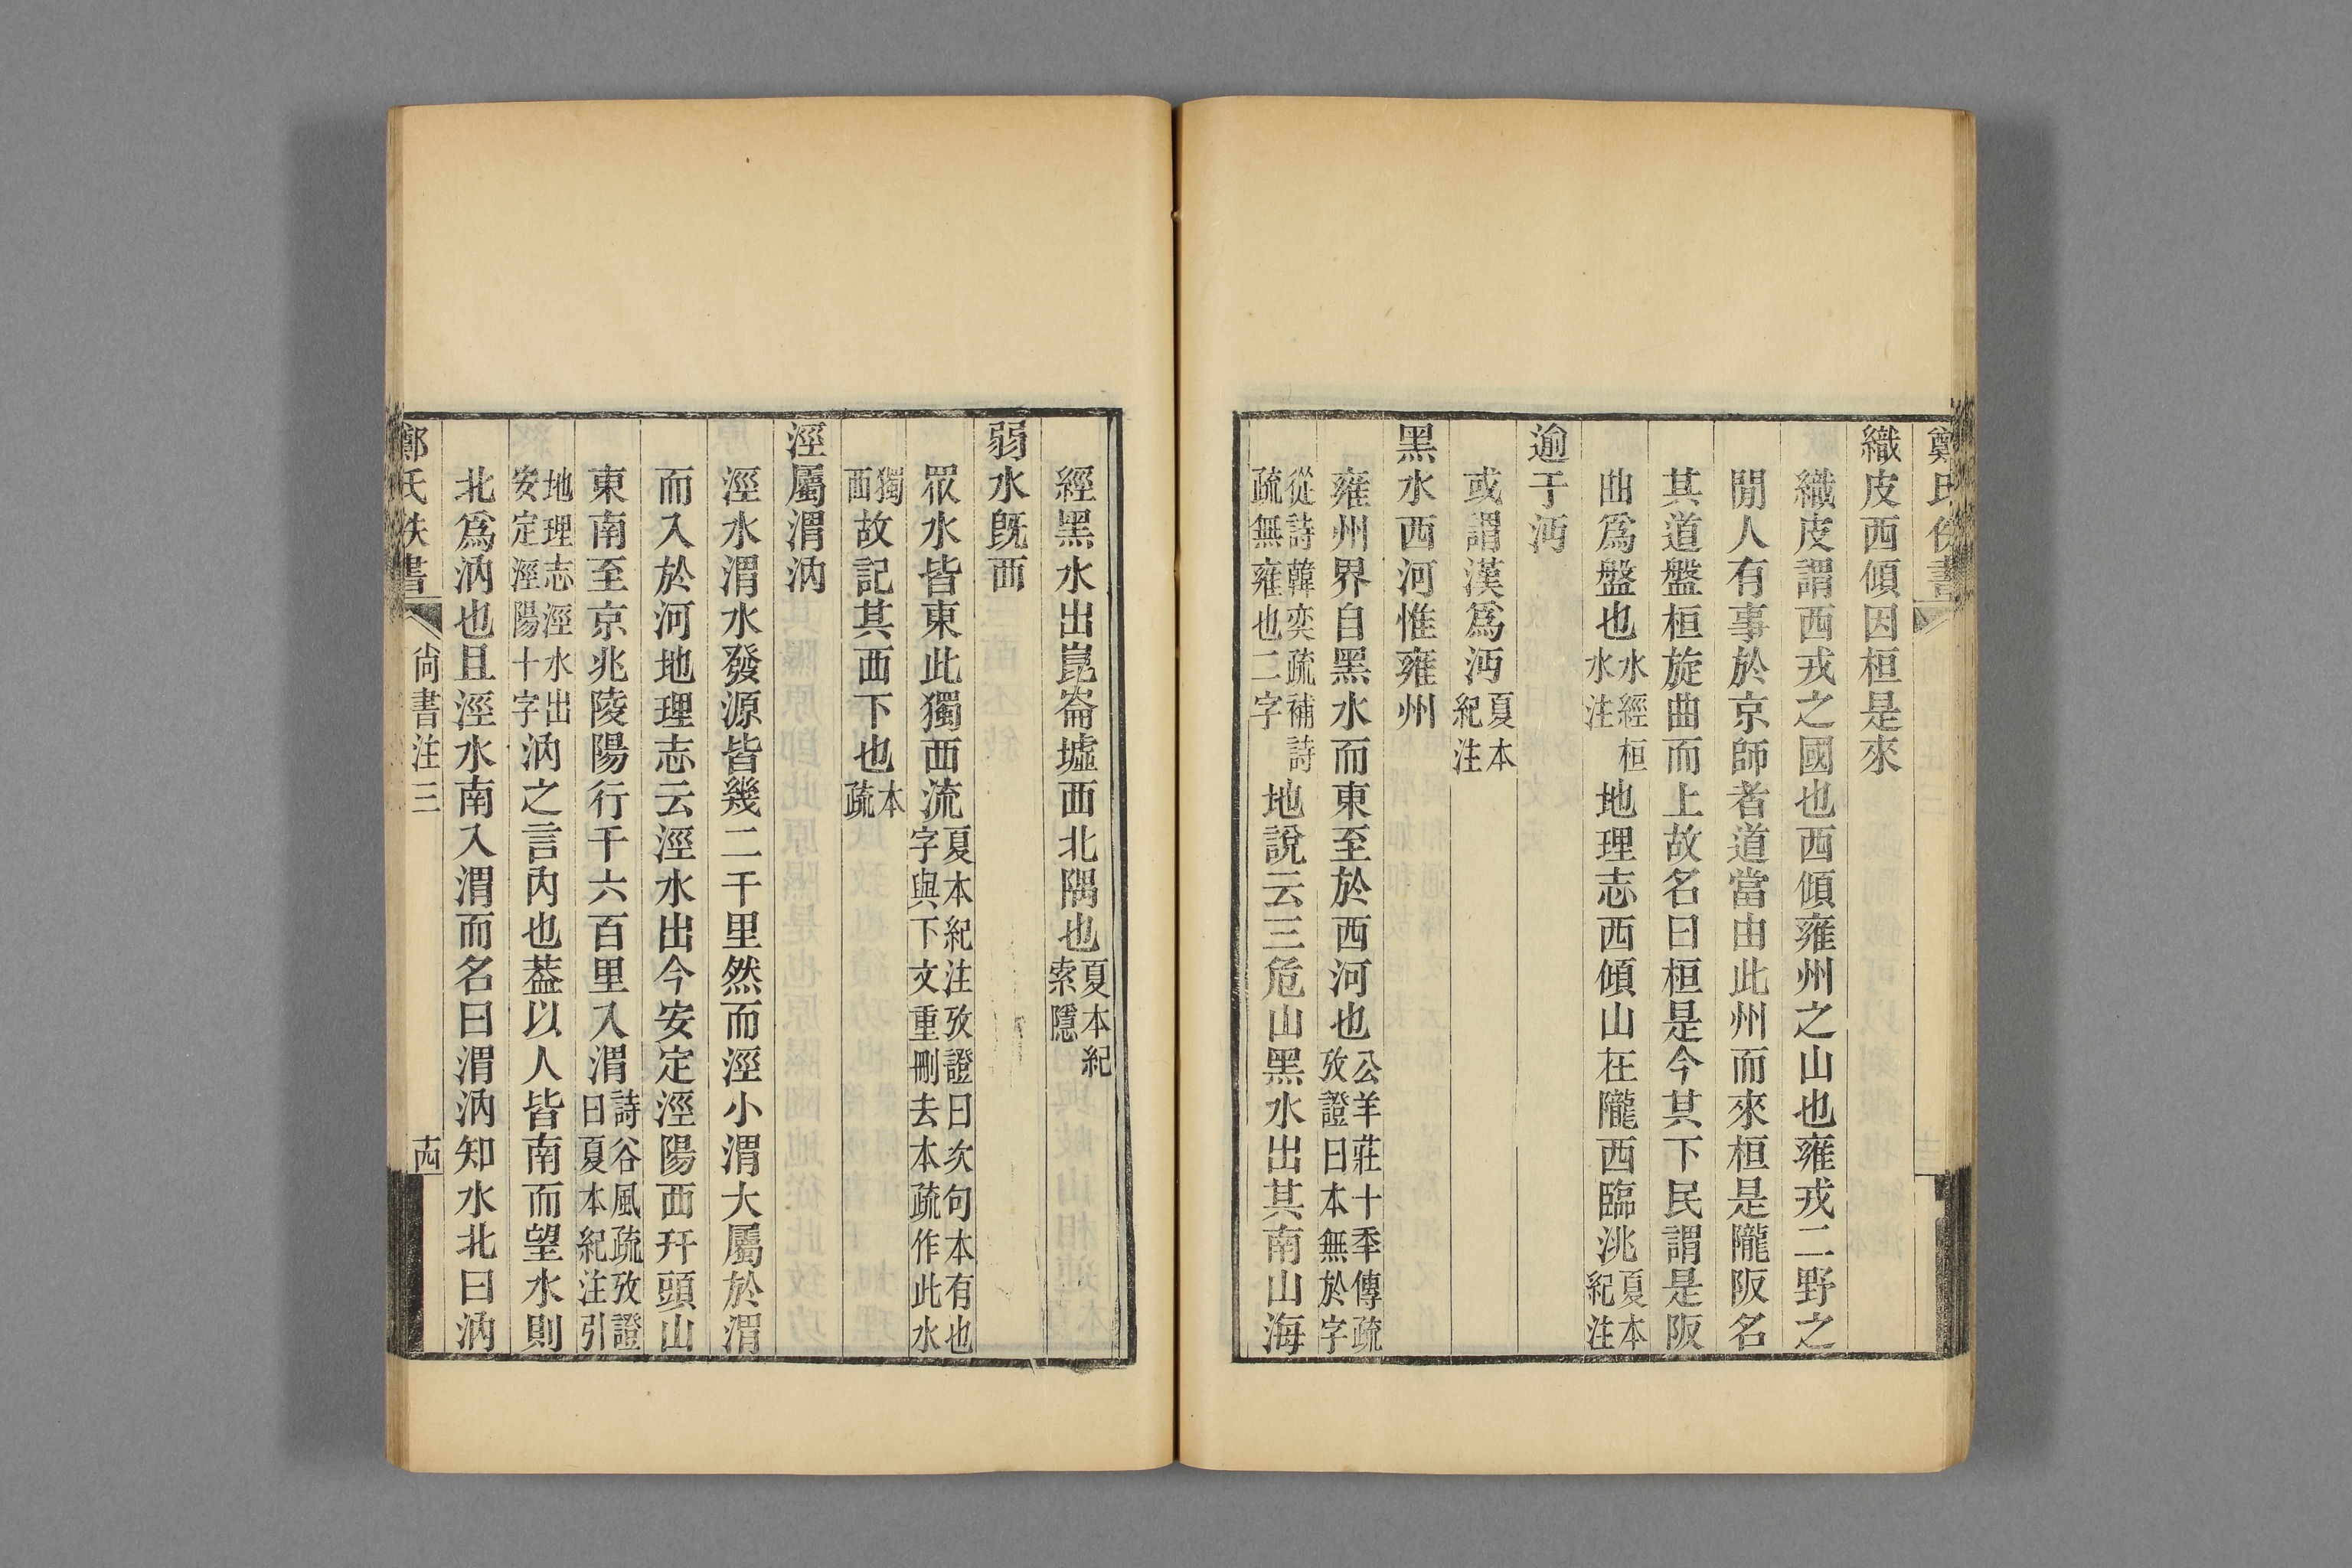 鄭氏佚書
織皮西傾因桓是來
織皮謂西戎之國也西傾雍州之山也雍戎二野之
閒人有事於京師者道當由此州而來桓是隴阪名
其道盤桓旋曲而上故名曰桓是今其下民謂是阪
曲爲盤也水經桓水注地理志西傾山在隴西臨洮夏本紀注
逾于沔
或謂漢爲沔夏本紀注
黑水西河惟雍州
雍州界自黑水而東至於西河也公羊莊十年傳疏攷證曰本無於字
從詩韓奕疏補詩疏無雍也二字地說云三危山黑水出其南山海
經黑水出崑崙墟西北隅也夏本紀索隱
弱水旣西
眾水皆東此獨西流夏本紀注攷證曰次句本有也字與下文重刪去本疏作此水
獨西故記其西下也本疏
涇屬渭汭
涇水渭水發源皆幾二千里然而涇小渭大屬於渭
而入於河地理志云涇水出今安定涇陽西幵頭山
東南至京兆陵陽行千六百里入渭詩谷風疏攷證曰夏本紀注引
地理志涇水出安定涇陽十字汭之言內也葢以人皆南而望水則
北爲汭也且涇水南入渭而名曰渭汭知水北曰汭
鄭氏佚書
尚書注三
十四